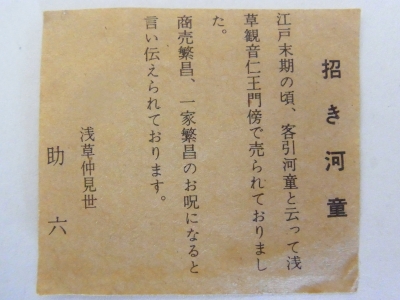 招き河童
江戸末期の頃、客引河童と云って浅
草観音仁王門傍で売られておりまし
た。
商売繁昌、一家繁昌のお呪になると
言い伝えられております。
浅草仲見世
助六